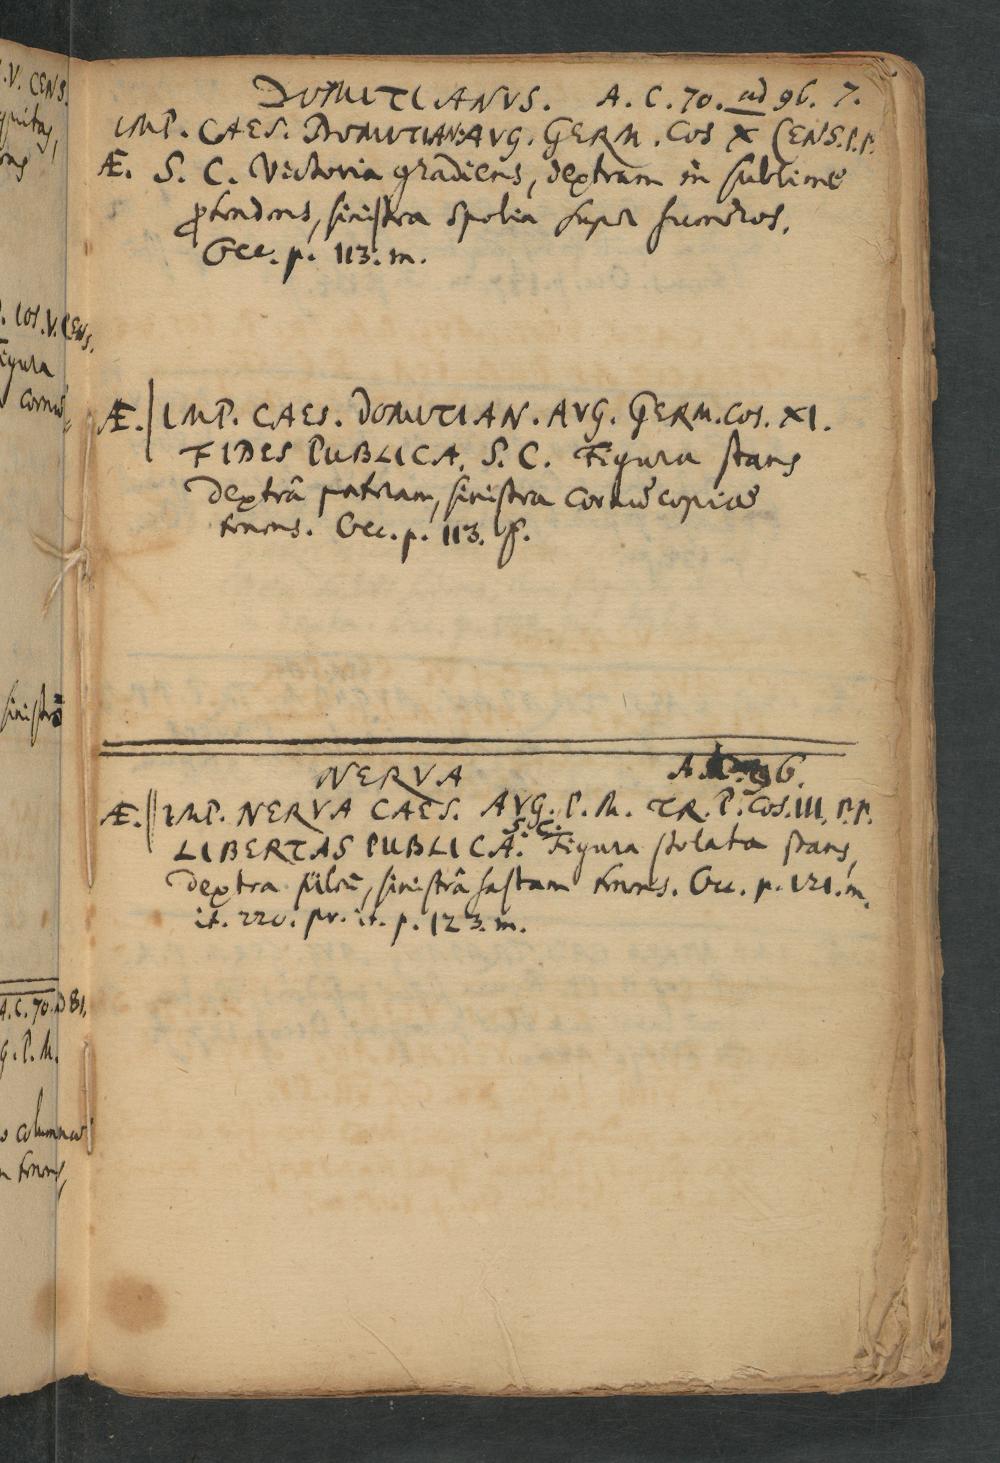 DOMITIANVS. A. C. 70. ad 96. 7.
IMP. CAES. DOMITIAN. AVG. GERM. COS X CENS. P.P.
Æ. S. C. Victoria gradiens, dextram in sublime
protendens, sinistra spolia super humeros.
Occ. p. 113. m.
Æ. IMP. CAES. DOMITIAN. AVG. GERM. COS. XI.
FIDES PUBLICA. S. C. Figura stans
dextrâ pateram, sinistra cornucopiae
tenens. Occ. p. 113. f.
NERVA A. C. 96.
Æ. IMP. NERVA CAES. AVG. P. M. TR. P. COS. III. P.P.
S. C.
LIBERTAS PUBLICA. Figura stolata stans,
dextra pileū, sinistrâ hastam tenens. Occ. p. 121. m.
it. 220. pr. it. p. 123. m.
.V. CENS.
. COS. V. CENS.
Figura
cornu
sinistrā
A. C. 70. AD 81.
G. P. M.
columnae
tenens,